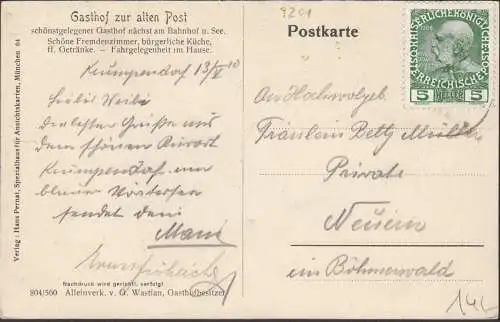 Gasthof zur alten Post
schönstgelegener Gasthof nächst am Bahnhof u. See.
Schöne Fremdenzimmer, bürgerliche Küche,
ff. Getränke. – Fahrgelegenheit im Hause.
Krumpendorf 13/V 10
Liebes Weibi
die besten Grüße aus
dem schönen Kurort
Krumpendorf am
blauen
sendet dein
Mani
Nachdruck wird gerichtl. verfolgt
804/560 Alleinverk. v. G. Wastian, Gasthofbesitzer
Verlag: Hans Pernat, Spezialhaus für Ansichtskarten, München 64
9201
Postkarte
KAISERLICHE KÖNIGLICHE ÖSTERREICHISCHE POST
5 HELLER 5
An Hochwolgeb.
Fräulein Betty Müller
Private
Neuern
im Böhmerwald